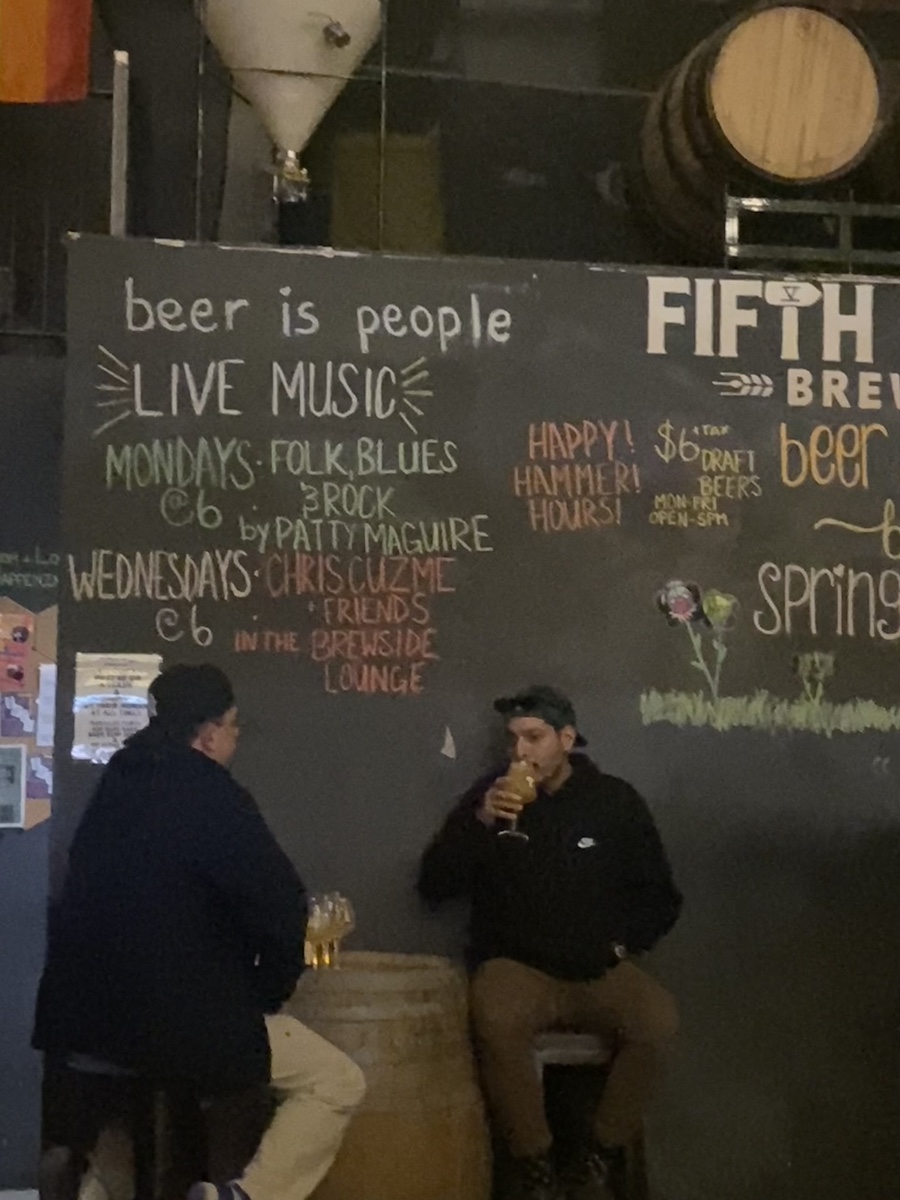 beer is people
LIVE MUSIC
MONDAYS · FOLK, BLUES
@6 · & ROCK
by PATTY MAGUIRE
WEDNESDAYS · CHRIS CUZME
@6 · + FRIENDS
IN THE BREWSIDE
LOUNGE
FIFTH
V
BREW
HAPPY!
HAMMER!
HOURS!
$6 + TAX
DRAFT
BEERS
MON-FRI
OPEN-5PM
beer
spring